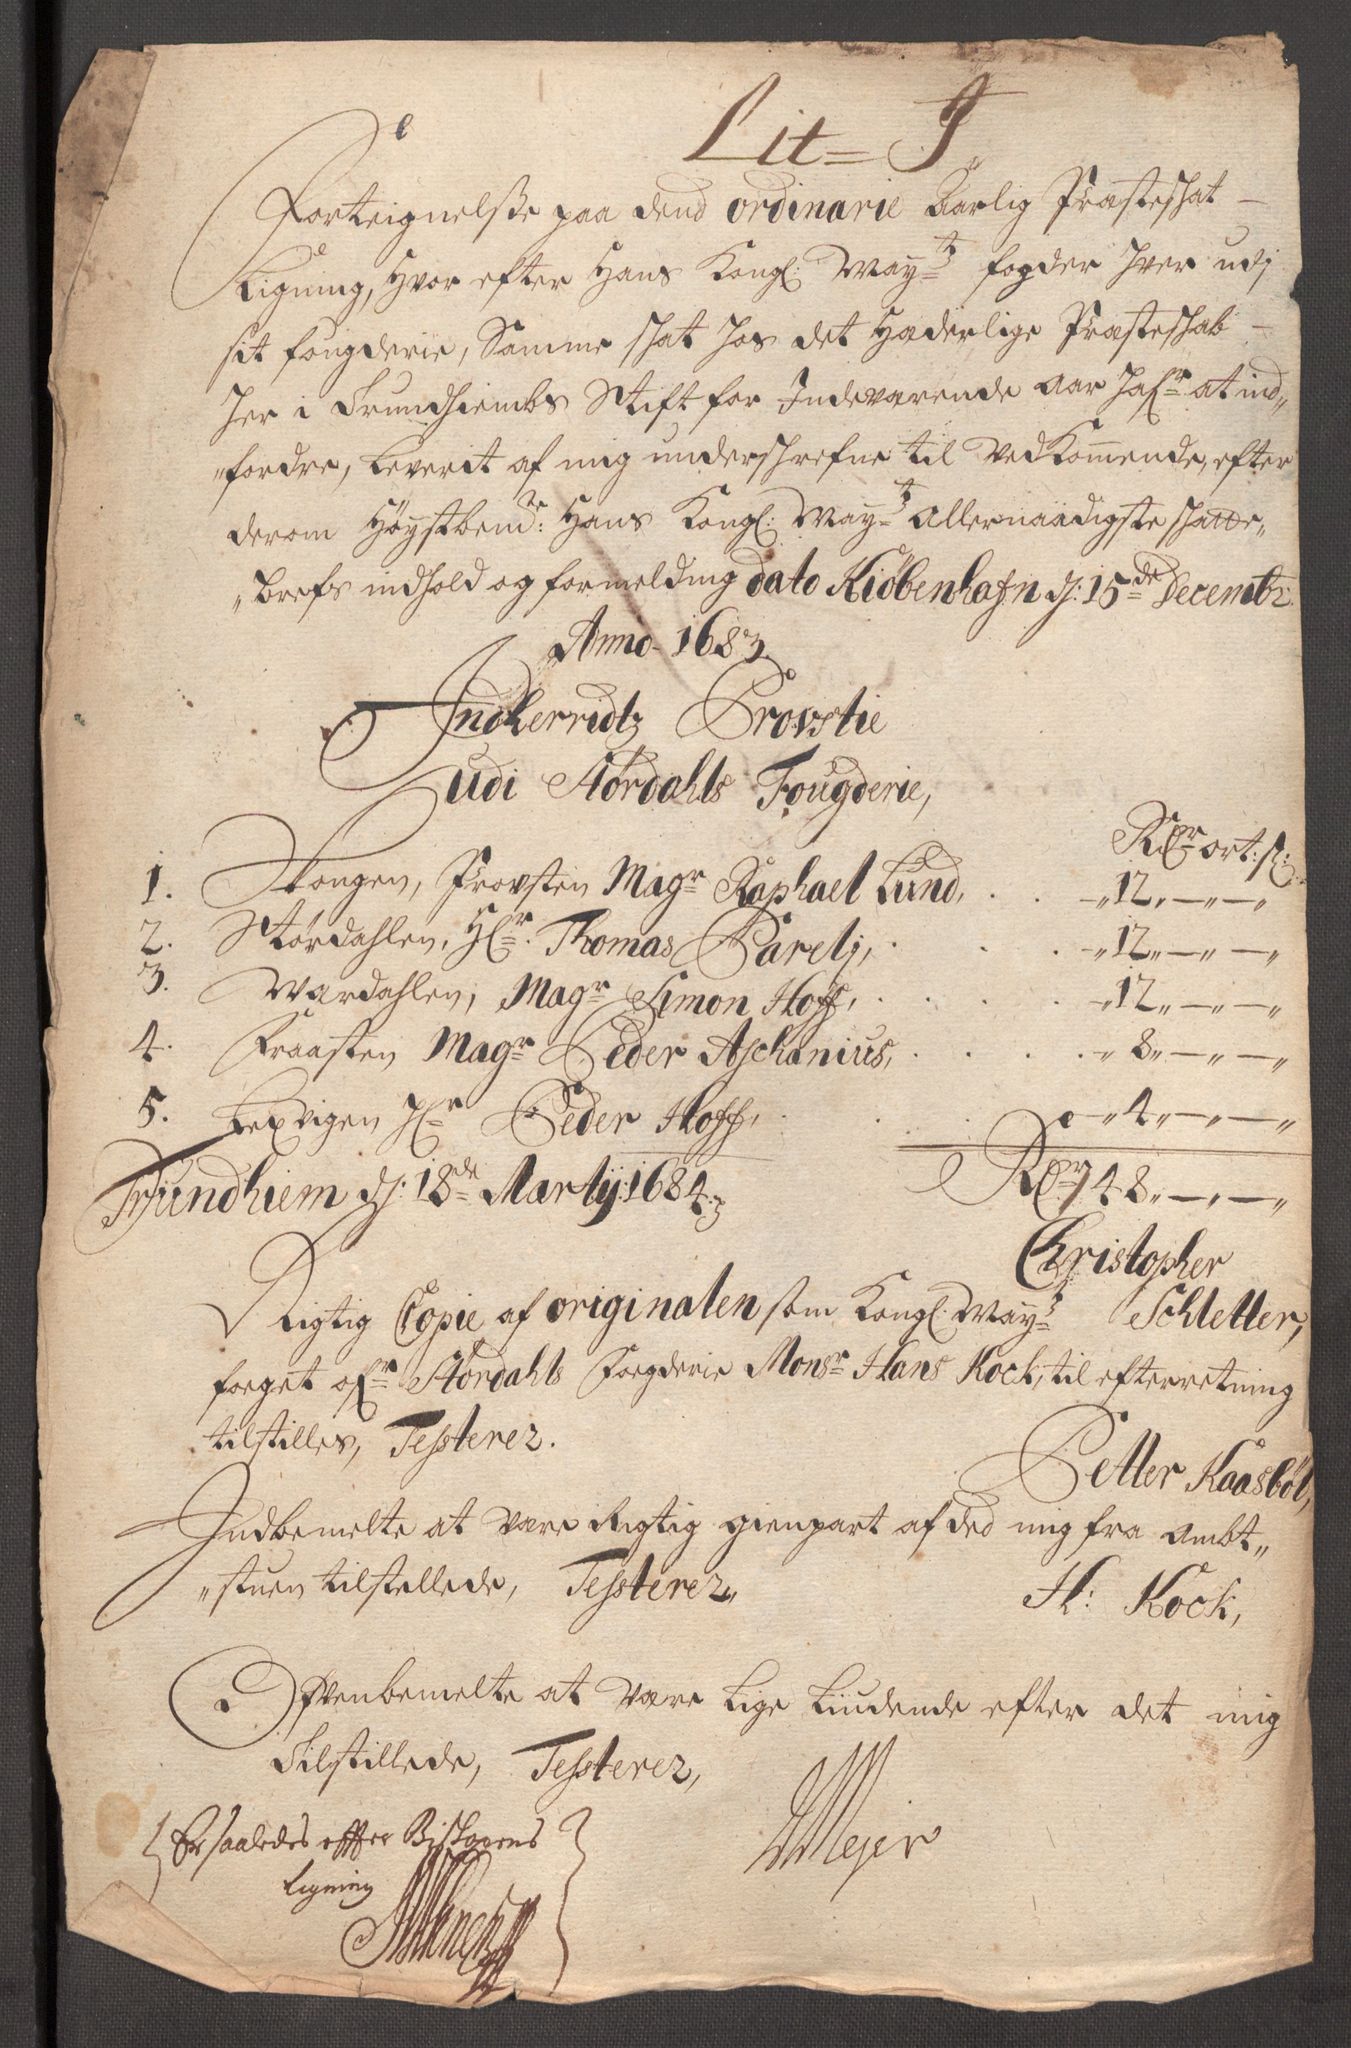 Lit= J
Forteignelsse paa dend ordinarie Aarlig Præsteschat
Ligning, Hvor efter Hans Kongl: May:tz fogder hver udj
sit fougderie, Samme schat hos det Hæderlige Præsteschab
her i Trundhiembs Stift for Indeværende Aar hafr at ind„
„fordre, Leverit af mig underschrefne til VedKommende, efter
derom Höystbemte: Hans Kongl: May:tz Allernaadigste schatte„
„brefs indhold og formelding dato Kiöbenhafn dj: 15de Decembr.
Anno 1683.
Indherridtz Provstie
udi Stördahls Fougderie,
Rdr ort: s:
1. Skongen, Provsten Magr Raphael Lund, . . „12„—„—„
2. Stördahlen, Hr. Thomas Parelj, . . . „12„—„—„
3. Wærdahlen, Magr Simon Hoff, . . . . „12„—„—„
4. Fraasten Magr Peder Aschanius, . . . . „8„—„—„
5. Lexvigen Hr Peder Hoff, . . . „4„—„—„
Rdr 48„—„—„
Trundhiem dj: 18de Martij: 1684.
Christopher
Schletter,
Rigtig Copie af originalen som Kongl. May:tz
foeget ofr Stördahls Foegderie Monsr Hans Kock, til efterretning
tilstilles, Testerer.
Petter Kaasböl,
Indbemelte at være Rigtig gienpart af ded mig fra Ambt„
„stuen tilstellede, Testerer,
H: Kock,
Ofvenbemelte at være Lige Liudende efter det mig
Tilstillede, Testerer,
Mejer
Er saaledes effter Bischopens
ligning